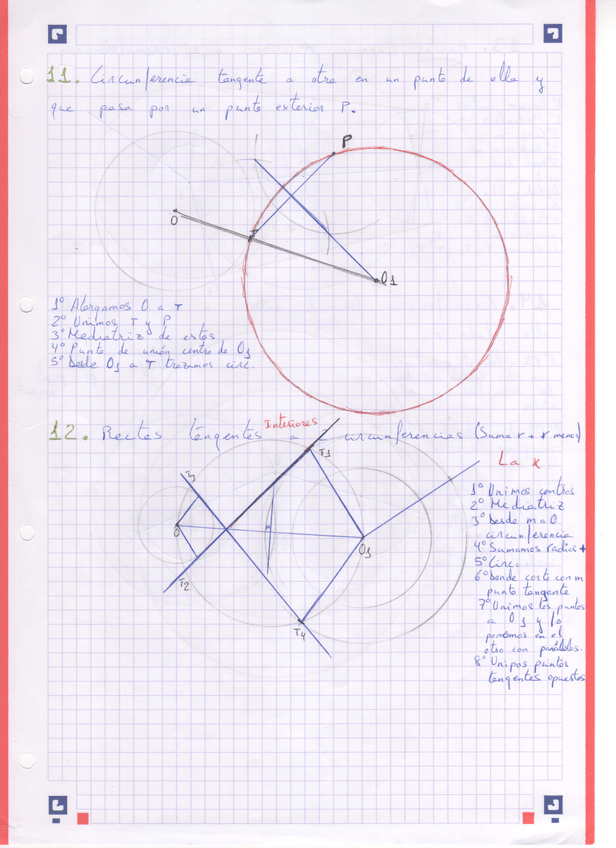 11. Circunferencia tangente a otra en un punto de ella y
que pasa por un punto exterior P.
P
O
T
O1
1º Alargamos O a T
2º Unimos T y P
3º Mediatriz de estos
4º Punto de unión centro de O1
5º Desde O1 a T trazamos circ.
Interiores
12. Rectas tangentes a 2 circunferencias (Suma r + r menor)
La x
T1
3
O
O1
T2
T4
1º Unimos centros
2º Mediatriz
3º Desde m a O
circunferencia
4º Sumamos radios +
5º Circ.
6º Donde corte con m
punto tangente
7º Unimos los puntos
a O1 y lo
ponemos en el
otro con paralelas.
8º Unipos puntos
tangentes opuestos